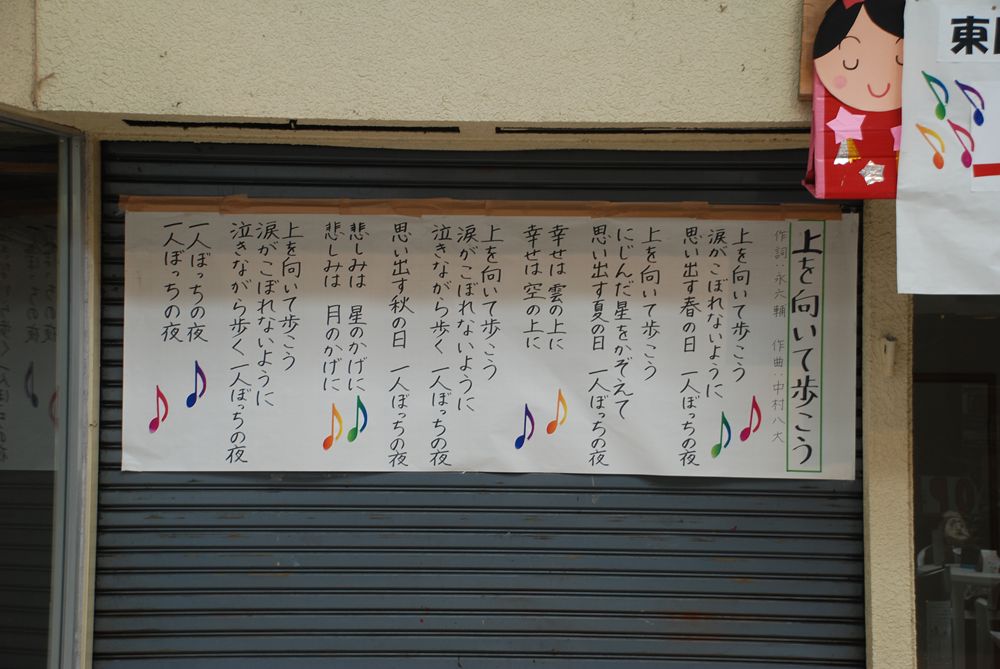 東
上を向いて歩こう
作詞:永六輔 作曲:中村八大
上を向いて歩こう
涙がこぼれないように
思い出す春の日 一人ぼっちの夜
上を向いて歩こう
にじんだ星をかぞえて
思い出す夏の日 一人ぼっちの夜
幸せは雲の上に
幸せは空の上に
上を向いて歩こう
涙がこぼれないように
泣きながら歩く 一人ぼっちの夜
思い出す秋の日 一人ぼっちの夜
悲しみは 星のかげに
悲しみは 月のかげに
上を向いて歩こう
涙がこぼれないように
泣きながら歩く 一人ぼっちの夜
一人ぼっちの夜
一人ぼっちの夜